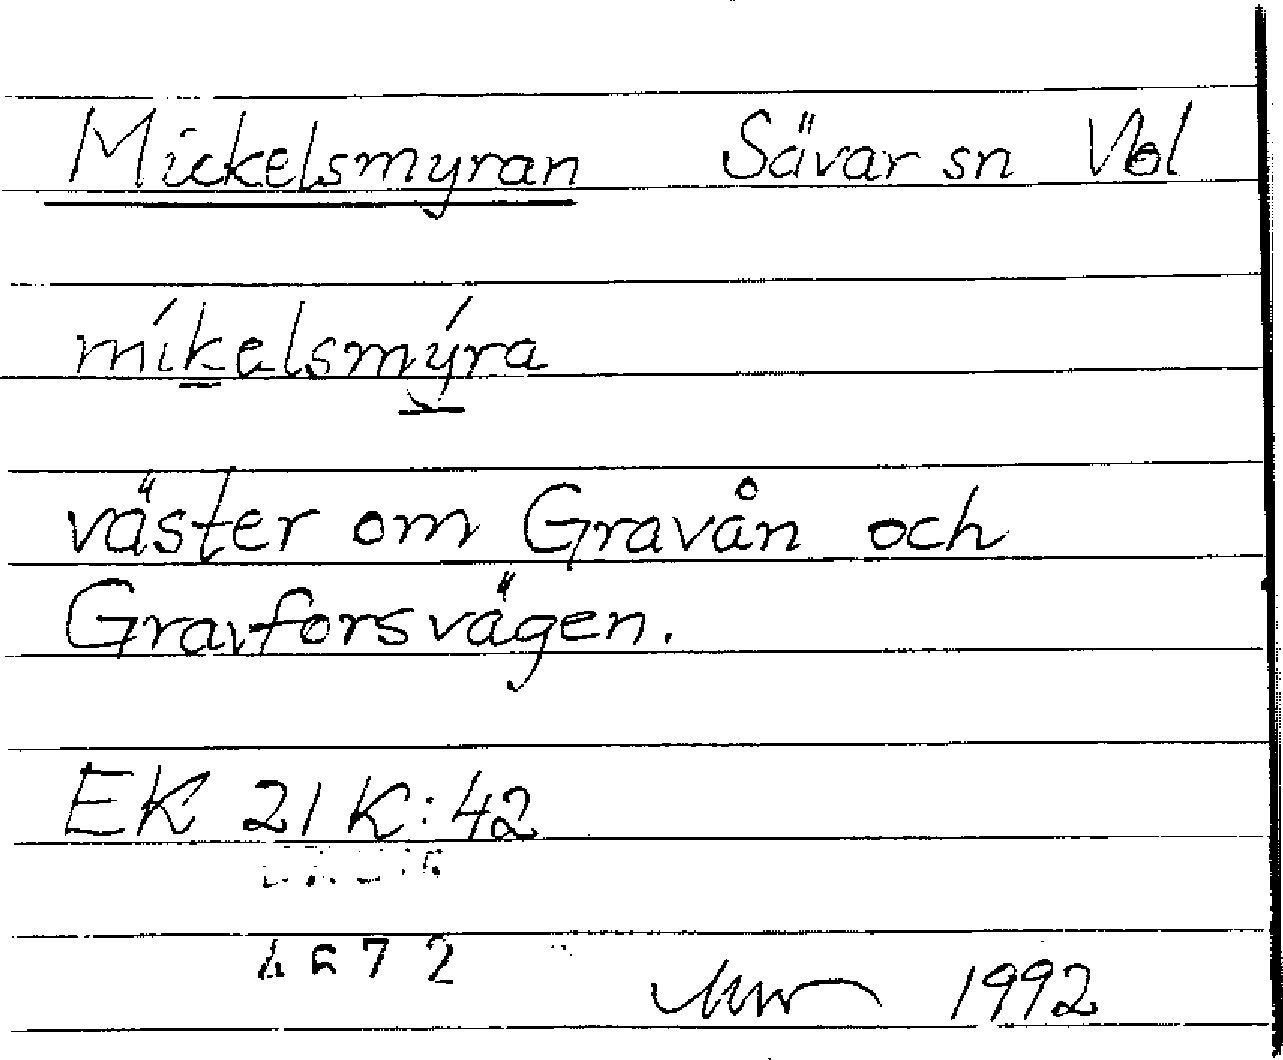 Mickelsmyran Sävar sn Vbl
míkelsmýra
väster om Gravån och
Gravforsvägen.
EK 21 K:42
1992